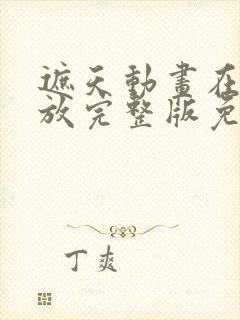 遮天動畫在
放完整版免
丁爽